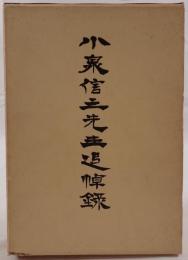 小泉信三先生追悼録